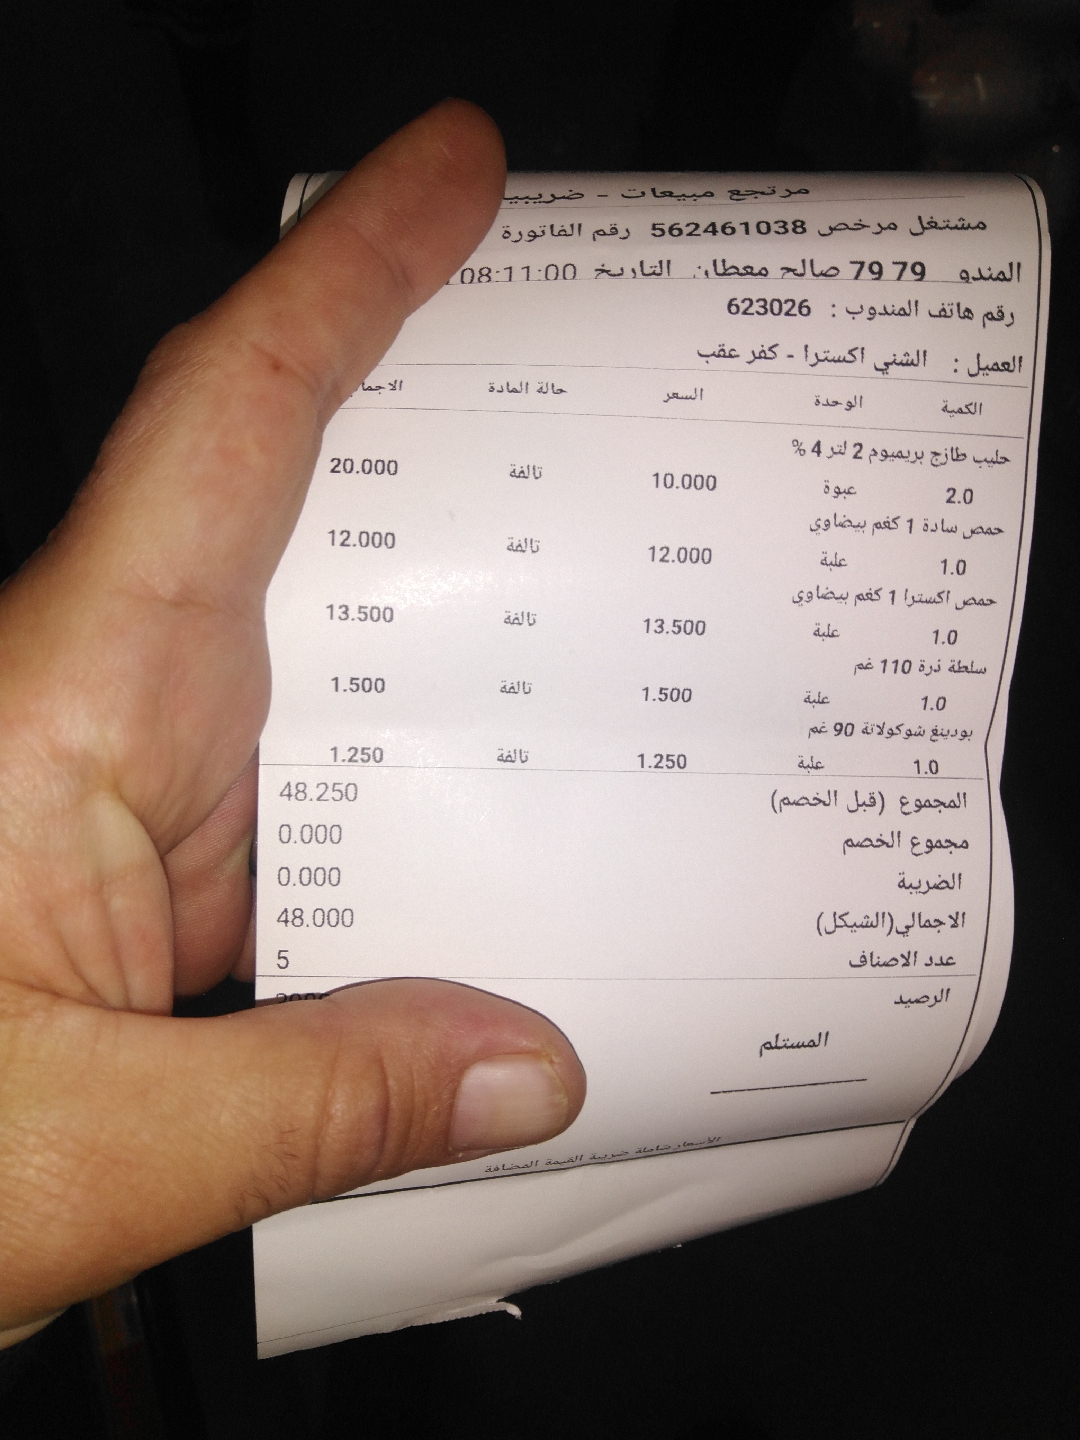 مرتجع مبيعات - ضريبية
مشتغل مرخص 562461038 رقم الفاتورة
المندو 79 79 صالح معطان التاريخ 08:11:00
رقم هاتف المندوب : 623026
العميل : الشني اكسترا - كفر عقب
الكمية الوحدة السعر حالة المادة الاجمالي
حليب طازج بريميوم 2 لتر 4 %
2.0 عبوة 10.000 تالفة 20.000
حمص سادة 1 كغم بيضاوي
1.0 علبة 12.000 تالفة 12.000
حمص اكسترا 1 كغم بيضاوي
1.0 علبة 13.500 تالفة 13.500
سلطة ذرة 110 غم
1.0 علبة 1.500 تالفة 1.500
بودينغ شوكولاتة 90 غم
1.0 علبة 1.250 تالفة 1.250
المجموع (قبل الخصم) 48.250
مجموع الخصم 0.000
الضريبة 0.000
الاجمالي(الشيكل) 48.000
عدد الاصناف 5
الرصيد
المستلم
الاسعار شاملة ضريبة القيمة المضافة